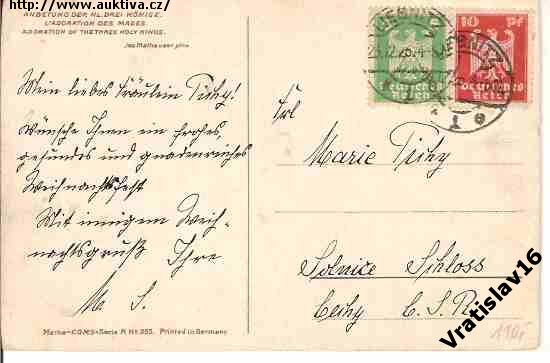 http://www.auktiva.cz/
ANBETUNG DER HL. DREI KÖNIGE.
L'ADORATION DES MAGES
ADORATION OF THE THREE HOLY KINGS.
Jos. Mathauser pinx
Mein liebes Fräulein Tichy!
Wünsche Ihnen ein frohes,
gesundes und gnadenreiches
Weihnachtsfest
Mit innigem Weih-
nachtsgruß Ihre
M. S.
Frl
Marie Tichy
Solnice Schloss
Čechy Č. S. R.
10 Pf
Deutsches
Reich
Deutsches
Reich
LIEGNITZ
Marke-C.O.M.S-Serie A Nr. 255. Printed in Germany
Vratislav16
110,-